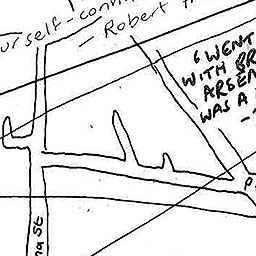 ur self-con
- Robert
"WENT
WITH BR
ARSEN
WAS A
na St
P